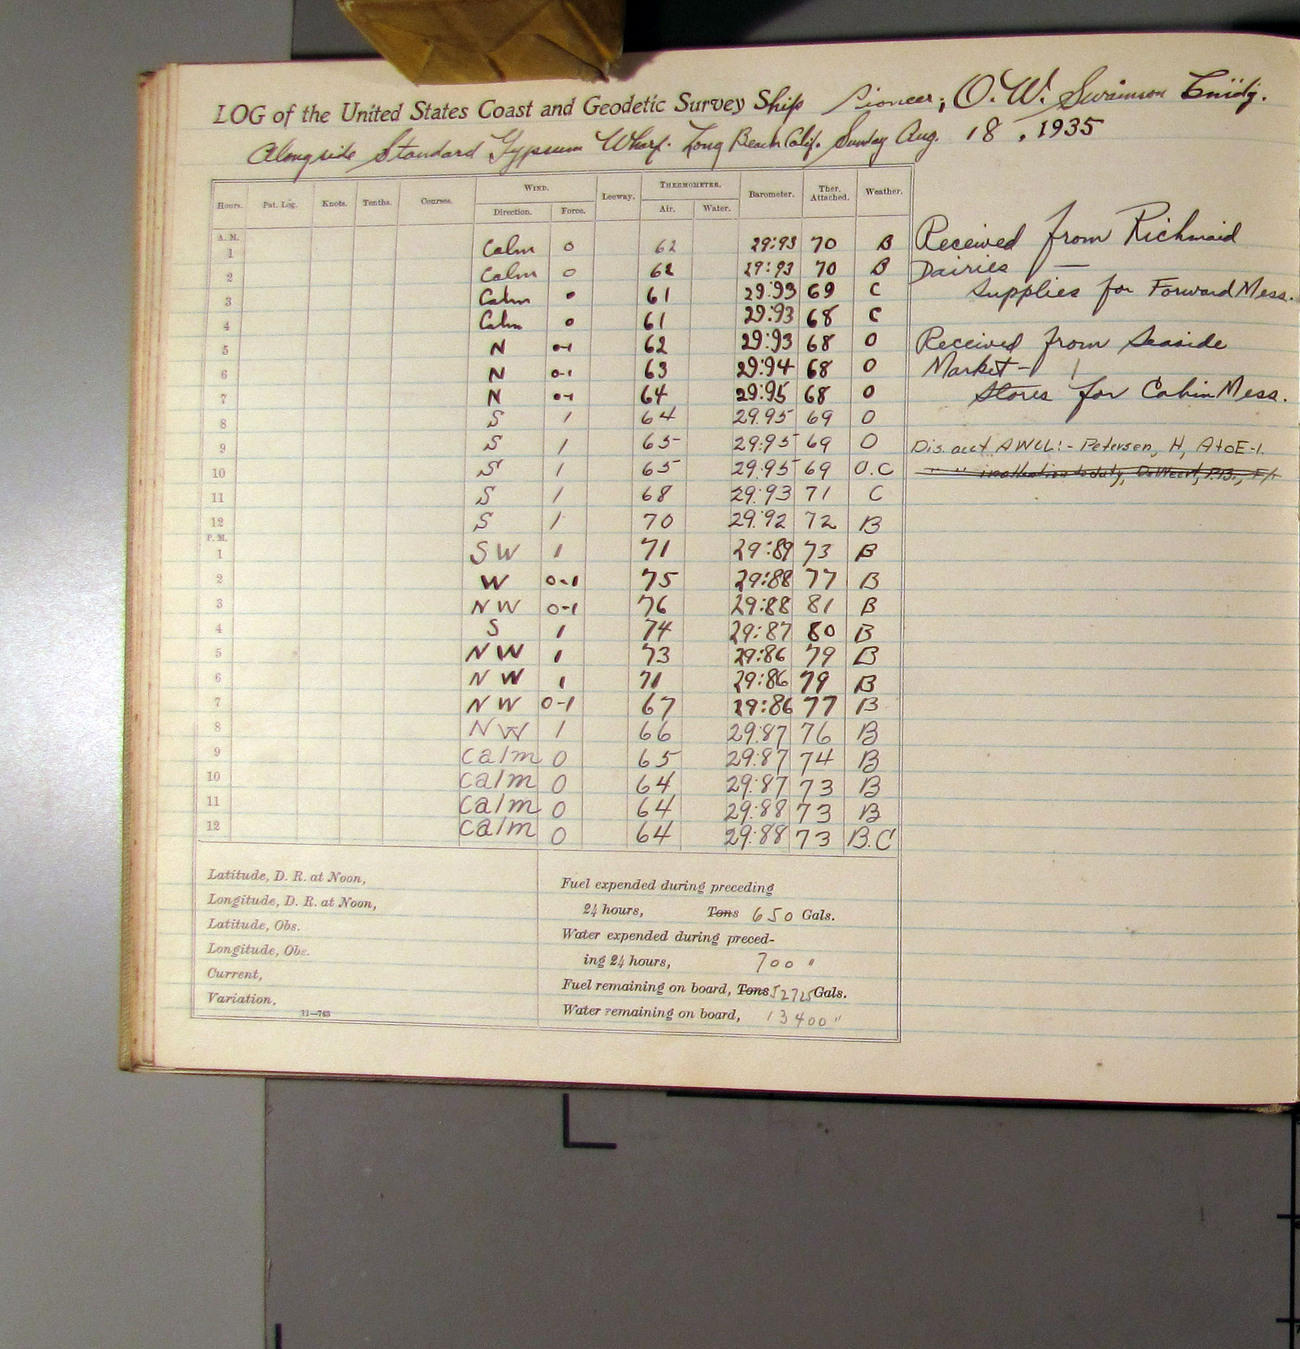 LOG of the United States Coast and Geodetic Survey Ship Pioneer, O. W. Swainson Cmdg.
Alongside Standard Gypsum Wharf. Long Beach Calif. Sunday Aug. 18, 1935
Hours. Pat. Log. Knots. Tenths. Courses. WIND. Direction. Force. Leeway. THERMOMETER. Air. Water. Barometer. Ther. Attached. Weather.
A. M.
1 Calm 0 62 29:93 70 B
2 Calm 0 62 29:93 70 B
3 Calm 0 61 29:93 69 C
4 Calm 0 61 29:93 68 C
5 N 0-1 62 29:93 68 O
6 N 0-1 63 29:94 68 O
7 N 0-1 64 29:95 68 O
8 S 1 64 29.95 69 O
9 S 1 65 29:95 69 O
10 S 1 65 29.95 69 O.C
11 S 1 68 29.93 71 C
12 S 1 70 29.92 72 B
P. M.
1 SW 1 71 29:89 73 B
2 W 0-1 75 29:88 77 B
3 NW 0-1 76 29:88 81 B
4 S 1 74 29:87 80 B
5 NW 1 73 29:86 79 B
6 NW 1 71 29:86 79 B
7 NW 0-1 67 29:86 77 B
8 NW 1 66 29.87 76 B
9 calm 0 65 29.87 74 B
10 calm 0 64 29.87 73 B
11 calm 0 64 29.88 73 B
12 calm 0 64 29.88 73 B.C
Received from Richmaid
Dairies —
Supplies for Forward Mess.
Received from Seaside
Market -
Stores for Cabin Mess.
Dis. acct. AWOL:- Petersen, H, A to E-1.
" " inattention to duty,
Latitude, D. R. at Noon,
Longitude, D. R. at Noon,
Latitude, Obs.
Longitude, Obs.
Current,
Variation,
11—763
Fuel expended during preceding
24 hours, Tons 650 Gals.
Water expended during preced-
ing 24 hours, 700 "
Fuel remaining on board, Tons 52725 Gals.
Water remaining on board, 13400 "